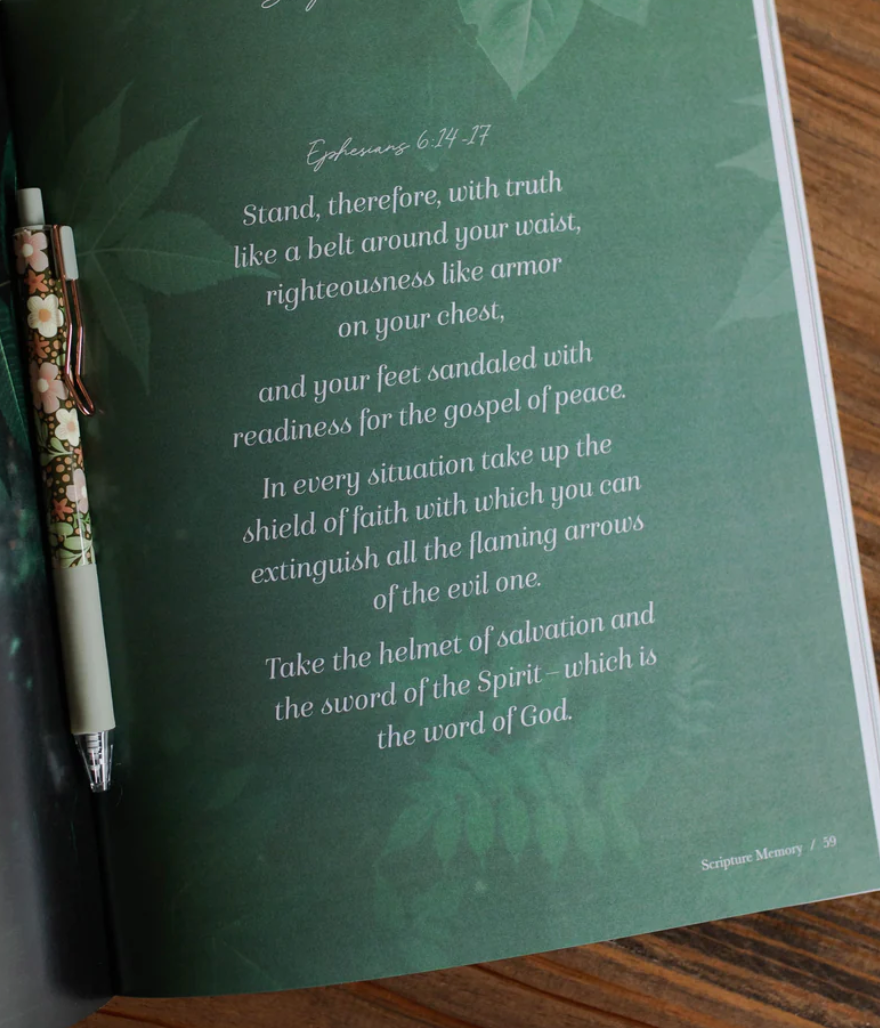 Ephesians 6:14-17
Stand, therefore, with truth
like a belt around your waist,
righteousness like armor
on your chest,
and your feet sandaled with
readiness for the gospel of peace.
In every situation take up the
shield of faith with which you can
extinguish all the flaming arrows
of the evil one.
Take the helmet of salvation and
the sword of the Spirit – which is
the word of God.
Scripture Memory / 59